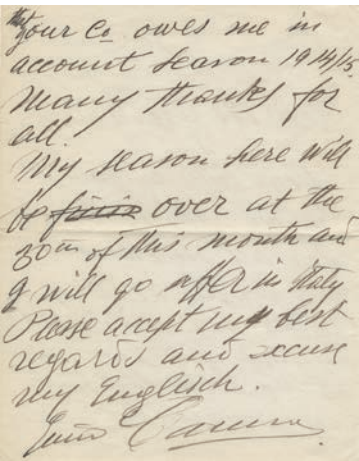 that
your Co owes me in
account season 1914/15
Many thanks for
all.
My season here will
be finis over at the
30th of this month and
I will go after in Italy
Please accept my best
regards and excuse
my Englisch.